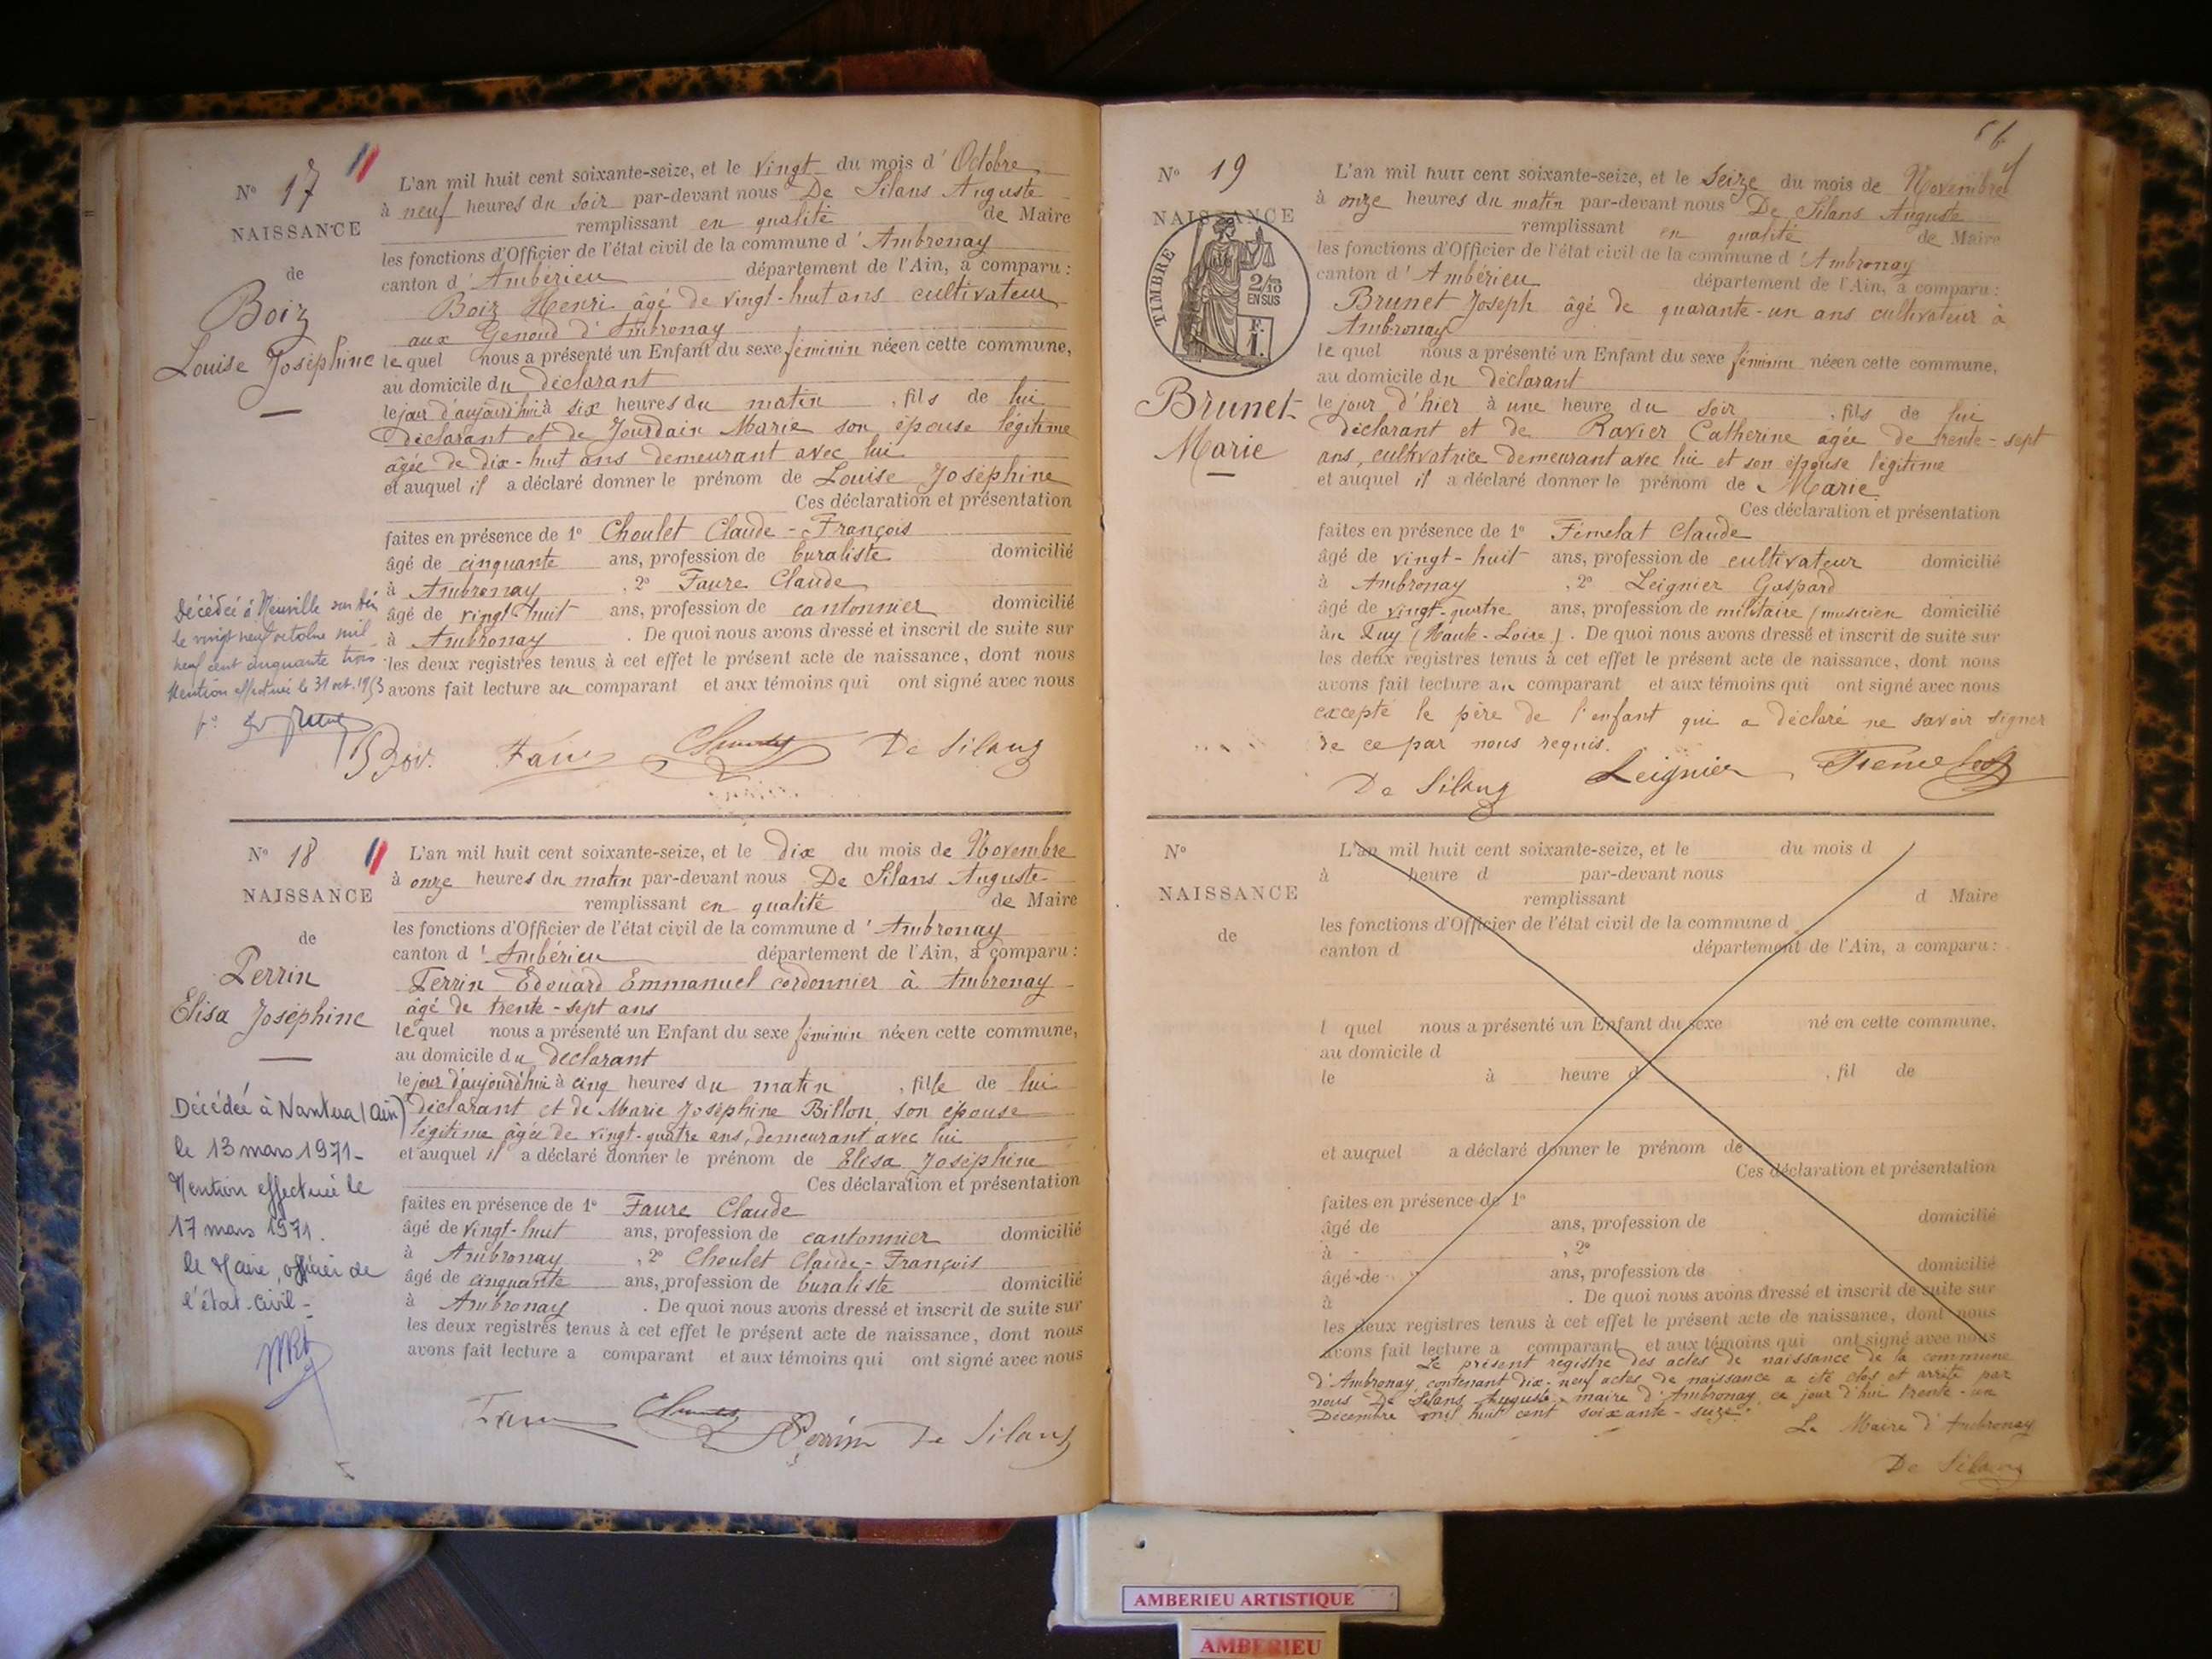 N° 17
NAISSANCE
de
Boiz
Louise Joséphine
L'an mil huit cent soixante-seize, et le Vingt du mois d'Octobre
à neuf heures du soir par-devant nous De Silans Auguste
remplissant en qualité de Maire
les fonctions d'Officier de l'état civil de la commune d'Ambronay
canton d'Ambérieu département de l'Ain, a comparu :
Boiz Henri âgé de vingt-huit ans cultivateur
aux Genoud d'Ambronay
lequel nous a présenté un Enfant du sexe féminin née en cette commune,
au domicile du déclarant
le jour d'aujourd'hui à six heures du matin, fils de lui
déclarant et de Jourdain Marie son épouse légitime
âgée de dix-huit ans demeurant avec lui
et auquel il a déclaré donner le prénom de Louise Joséphine
Ces déclaration et présentation
faites en présence de 1° Choulet Claude-François
âgé de cinquante ans, profession de buraliste domicilié
à Ambronay, 2° Faure Claude
âgé de vingt huit ans, profession de cantonnier domicilié
à Ambronay. De quoi nous avons dressé et inscrit de suite sur
les deux registres tenus à cet effet le présent acte de naissance, dont nous
avons fait lecture au comparant et aux témoins qui ont signé avec nous
Décédée à Neuville sur Ain
le vingt neuf octobre mil
neuf cent cinquante trois
Mention effectuée le 31 oct. 1953
Boiz Faure De Silans
N° 18
NAISSANCE
de
Perrin
Elisa Joséphine
L'an mil huit cent soixante-seize, et le dix du mois de Novembre
à onze heures du matin par-devant nous De Silans Auguste
remplissant en qualité de Maire
les fonctions d'Officier de l'état civil de la commune d'Ambronay
canton d'Ambérieu département de l'Ain, a comparu :
Perrin Edouard Emmanuel cordonnier à Ambronay
âgé de trente-sept ans
lequel nous a présenté un Enfant du sexe féminin née en cette commune,
au domicile du déclarant
le jour d'aujourd'hui à cinq heures du matin, fille de lui
déclarant et de Marie Joséphine Billon son épouse
légitime âgée de vingt-quatre ans, demeurant avec lui
et auquel il a déclaré donner le prénom de Elisa Joséphine
Ces déclaration et présentation
faites en présence de 1° Faure Claude
âgé de vingt-huit ans, profession de cantonnier domicilié
à Ambronay, 2° Choulet Claude-François
âgé de cinquante ans, profession de buraliste domicilié
à Ambronay. De quoi nous avons dressé et inscrit de suite sur
les deux registres tenus à cet effet le présent acte de naissance, dont nous
avons fait lecture a comparant et aux témoins qui ont signé avec nous
Décédée à Nantua (Ain)
le 13 mars 1971-
Mention effectuée le
17 mars 1971.
le Maire, officier de
l'état-civil-
Faure Perrin De Silans
N° 19
NAISSANCE
TIMBRE
2/10
EN SUS
Brunet
Marie
L'an mil huit cent soixante-seize, et le Seize du mois de Novembre
à onze heures du matin par-devant nous De Silans Auguste
remplissant en qualité de Maire
les fonctions d'Officier de l'état civil de la commune d'Ambronay
canton d'Ambérieu département de l'Ain, a comparu :
Brunet Joseph âgé de quarante-un ans cultivateur à
Ambronay
lequel nous a présenté un Enfant du sexe féminin née en cette commune,
au domicile du déclarant
le jour d'hier à une heure du soir, fils de lui
déclarant et de Ravier Catherine âgée de trente-sept
ans, cultivatrice demeurant avec lui et son épouse légitime
et auquel il a déclaré donner le prénom de Marie
Ces déclaration et présentation
faites en présence de 1° Fémelat Claude
âgé de vingt-huit ans, profession de cultivateur domicilié
à Ambronay, 2° Leignier Gaspard
âgé de vingt-quatre ans, profession de militaire (musicien domicilié
au Puy (Haute-Loire). De quoi nous avons dressé et inscrit de suite sur
les deux registres tenus à cet effet le présent acte de naissance, dont nous
avons fait lecture au comparant et aux témoins qui ont signé avec nous
excepté le père de l'enfant qui a déclaré ne savoir signer
de ce par nous requis.
De Silans Leignier Femelat
N°
NAISSANCE
de
L'an mil huit cent soixante-seize, et le du mois d
à heure d par-devant nous
remplissant d Maire
les fonctions d'Officier de l'état civil de la commune d
canton d département de l'Ain, a comparu :
l quel nous a présenté un Enfant du sexe né en cette commune,
au domicile d
le à heure d, fil de
et auquel a déclaré donner le prénom de
Ces déclaration et présentation
faites en présence de 1°
âgé de ans, profession de domicilié
à, 2°
âgé de ans, profession de domicilié
à. De quoi nous avons dressé et inscrit de suite sur
les deux registres tenus à cet effet le présent acte de naissance, dont nous
avons fait lecture a comparant et aux témoins qui ont signé avec nous
Le présent registre des actes de naissance de la commune
d'Ambronay contenant dix-neuf actes de naissance a été clos et arrêté par
nous De Silans Auguste, maire d'Ambronay ce jour d'hui trente-un
Décembre mil huit cent soixante-seize.
Le Maire d'Ambronay
De Silans
AMBERIEU ARTISTIQUE
AMBERIEU